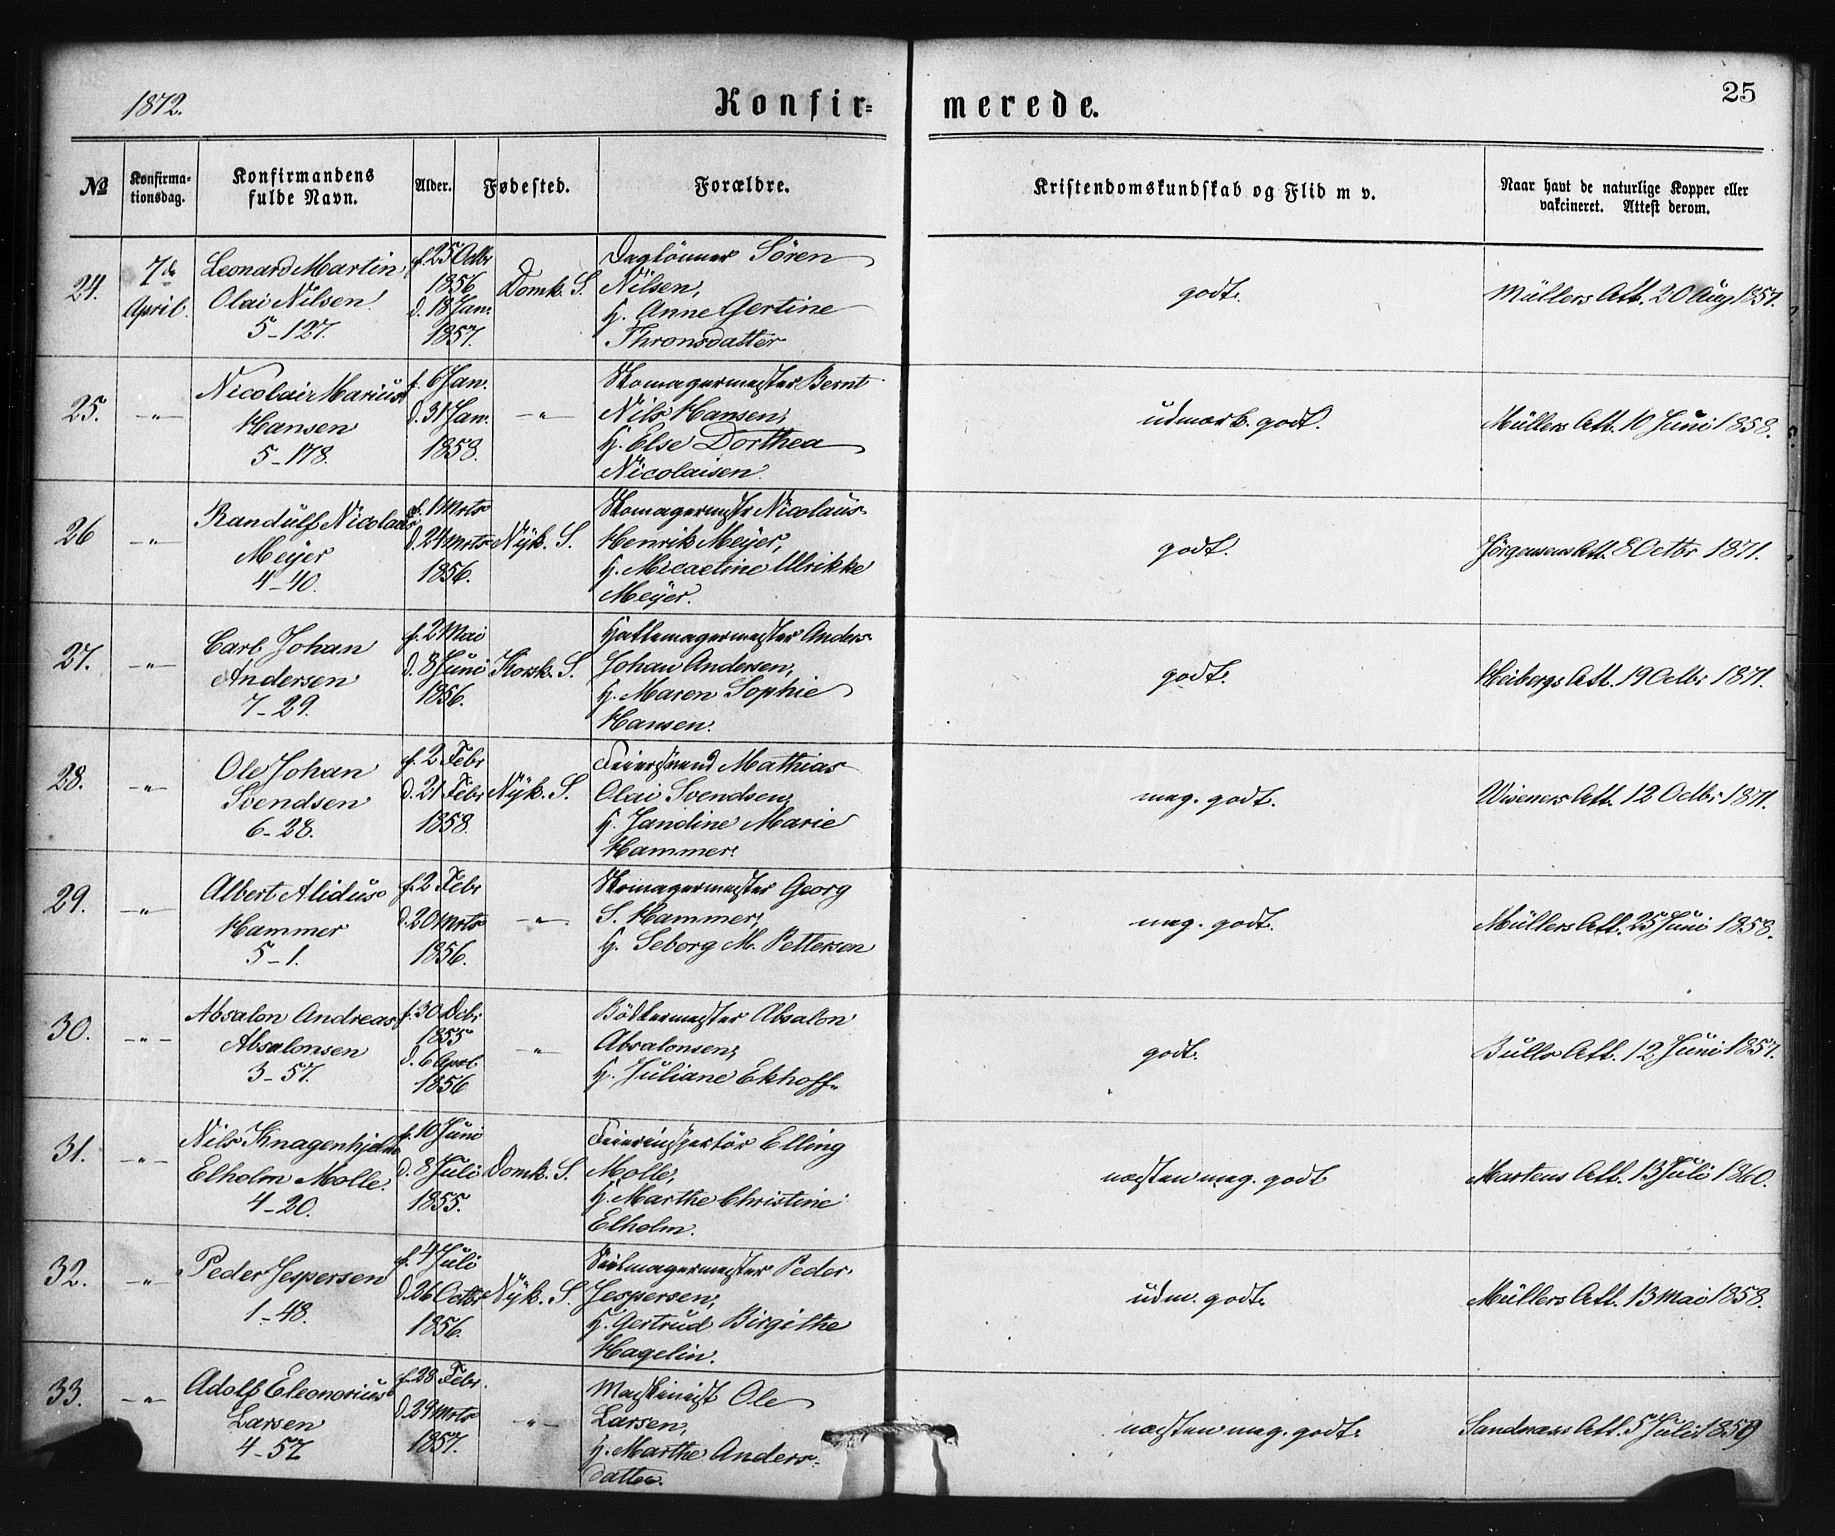 1872.
Konfir=
merede.
25
№
Konfirma-
tionsdag.
Konfirmandens
fulde Navn.
Alder.
Fødested.
Forældre.
Kristendomskundskab og Flid m v.
Naar havt de naturlige Kopper eller
vakcineret. Attest derom.
24.
7de
April.
Leonard Martin
Olai Nilsen.
5-127.
f. 25 Octbr
1856
d. 18 Jan.
1857.
Domk. S.
Daglönner Sören
Nilsen,
H. Anne Gertine
Thronsdatter
godt.
Müllers Att. 20 Aug 1857.
25.
-"-
Nicolai Marius
Hansen
5-178.
f. 6 Jan.
d. 31 Jan.
1858.
-"-
Skomagermester Bernt
Nils Hansen,
H. Else Dorthea
Nicolaisen.
udmærk. godt.
Müllers Att. 10 Juni 1858.
26
-"-
Randulf Nicolai
Meyer
4-40.
f. 1 Mrts
d. 24 Mrts
1856.
Nyk. S.
Skomagermstr Nicolaus
Henrik Meyer,
H. Micaeline Ulrikke
Meyer.
godt.
Jörgensens Att. 8 Octbr 1871.
27.
-"-
Carl Johan
Andersen
7-29.
f. 2 Mai
d. 8 Juni
1856.
Korsk. S.
Hattemagermester Anders
Johan Andersen,
H. Maren Sophie
Hansen.
godt.
Heibergs Att. 19 Octbr 1871.
28.
-"-
Ole Johan
Svendsen
6-28.
f. 2 Febr
d. 21 Febr
1858.
Nyk. S.
Feiersvend Mathias
Olai Svendsen,
H. Jandine Marie
Hammer.
meg. godt.
Wiseners Att. 12 Octbr 1871.
29.
-"-
Albert Alidus
Hammer
5-1.
f. 2 Febr
d. 20 Mrts
1856.
-"-
Skomagermester Georg
S. Hammer,
H. Seborg M. Pettersen
meg. godt.
Müllers Att. 25 Juni 1858.
30.
-"-
Absalon Andreas
Absalonsen
3-57.
f. 30 Dcbr
1855
d. 6 April
1856
-"-
Bödkermester Absalon
Absalonsen,
H. Juliane Ekhoff
godt.
Bulls Att. 12 Juni 1857.
31.
-"-
Nils Knagenhjelm
Elholm Molle.
4-20.
f. 10 Juni
d. 8 Juli
1855.
Domk. S.
Feierinspektör Elling
Molle,
H. Marthe Christine
Elholm.
næsten meg. godt
Martens Att. 13 Juli 1860.
32.
-"-
Peder Jespersen
1-48.
f. 4 Juli
d. 26 Octbr
1856.
Nyk. S.
Seilmagermester Peder
Jespersen,
H. Gertrud Birgithe
Hagelin.
udm. godt.
Müllers Att. 13 Mai 1858.
33.
-"-
Adolf Eleonorius
Larsen
4-57
f. 28 Febr.
d. 29 Mrts
1857.
-"-
Maskinist Ole
Larsen,
H. Marthe Anders-
datter.
næsten meg. godt.
Sandnæs Att. 5 Juli 1859